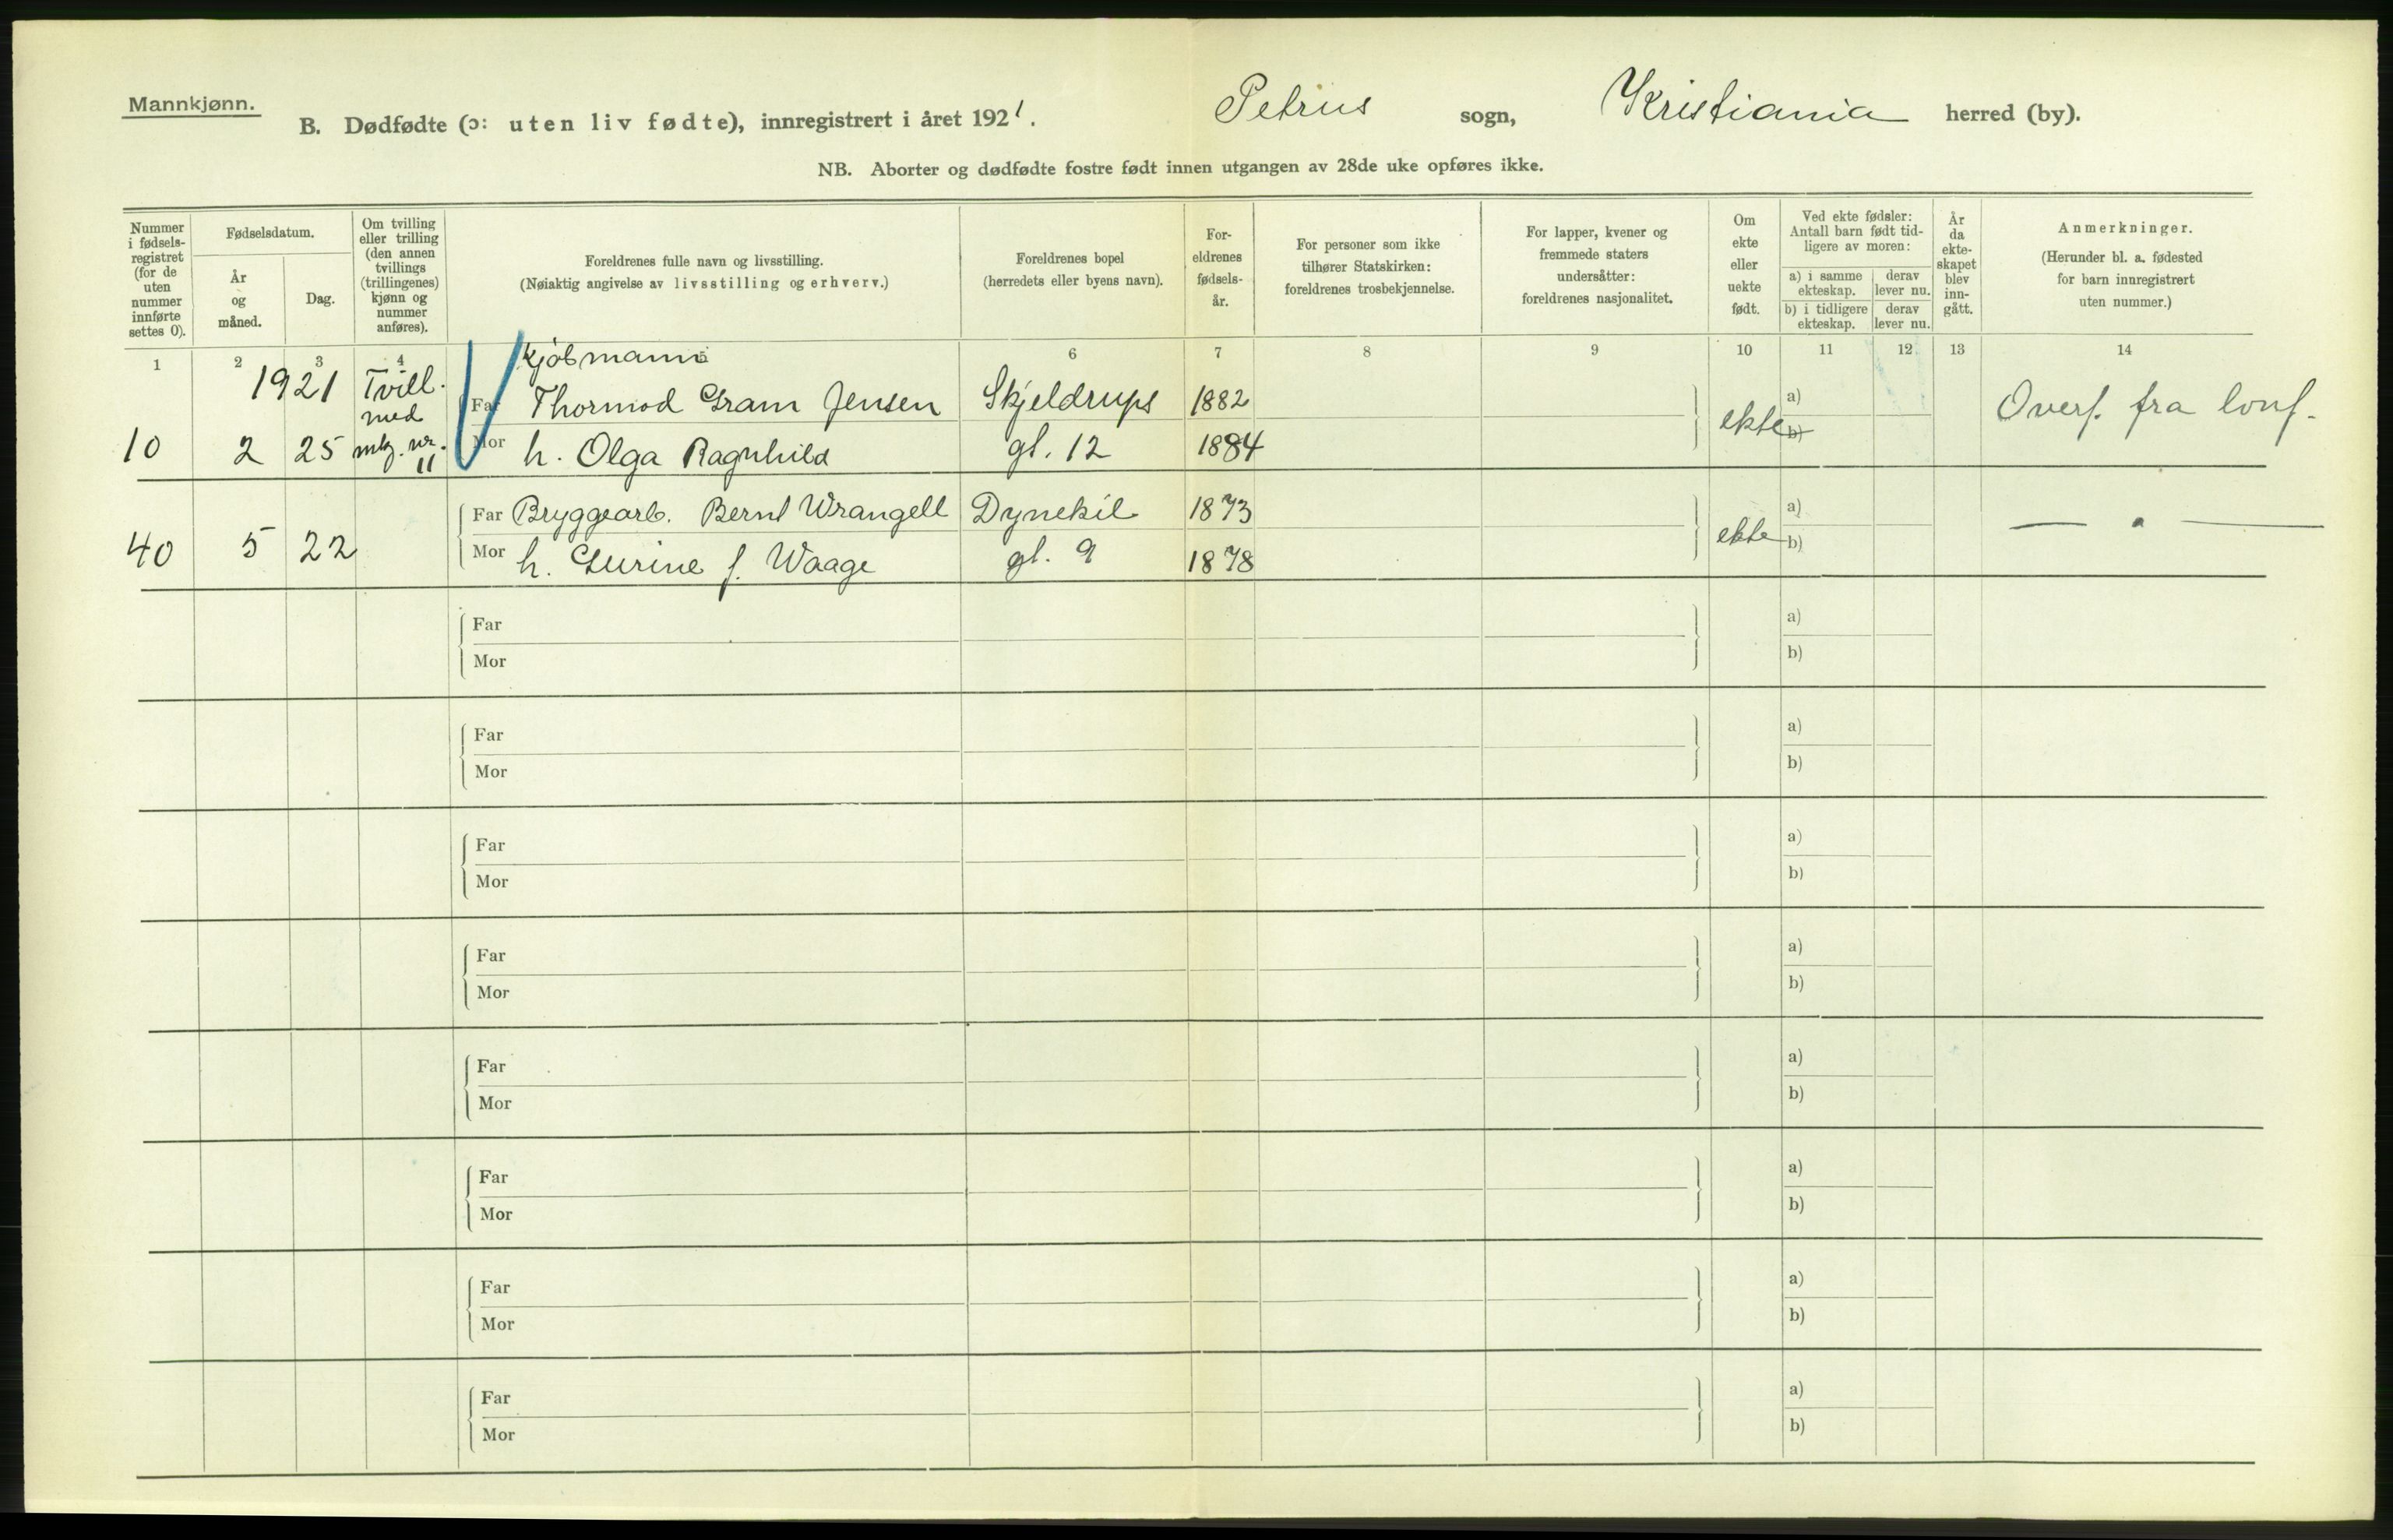 Mannkjønn.
B. Dødfødte (ɔ: uten liv fødte), innregistrert i året 1921. Petrus sogn, Kristiania herred (by).
NB. Aborter og dødfødte fostre født innen utgangen av 28de uke opføres ikke.
Nummer
i fødsels-
registret
(for de
uten
nummer
innførte
settes 0).
Fødselsdatum.
År
og
måned.
Dag.
Om tvilling
eller trilling
(den annen
tvillings
(trillingenes)
kjønn og
nummer
anføres).
Foreldrenes fulle navn og livsstilling.
(Nøiaktig angivelse av livsstilling og erhverv.)
Foreldrenes bopel
(herredets eller byens navn).
For-
eldrenes
fødsels-
år.
For personer som ikke
tilhører Statskirken:
foreldrenes trosbekjennelse.
For lapper, kvener og
fremmede staters
undersåtter:
foreldrenes nasjonalitet.
Om
ekte
eller
uekte
født.
Ved ekte fødsler:
Antall barn født tid-
ligere av moren:
a) i samme
ekteskap.
derav
lever nu.
b) i tidligere
ekteskap.
derav
lever nu.
År
da
ekte-
skapet
blev
inn-
gått.
Anmerkninger.
(Herunder bl. a. fødested
for barn innregistrert
uten nummer.)
1 2 3 4 5 6 7 8 9 10 11 12 13 14
1921 Tvill. Kjøbmann
med Far Thormod Gram Jensen Skjeldrups 1882 a) Overf. fra
10 2 25 nr. 11 Mor h. Olga Ragnhild gt. 12 1884 ekte b)
Far Bryggearb. Bernt Wrangell Dynekil 1873 a) — " —
40 5 22 Mor h. Gurine f. Waage gt. 9 1878 ekte b)
Far a)
Mor b)
Far a)
Mor b)
Far a)
Mor b)
Far a)
Mor b)
Far a)
Mor b)
Far a)
Mor b)
Far a)
Mor b)
Far a)
Mor b)